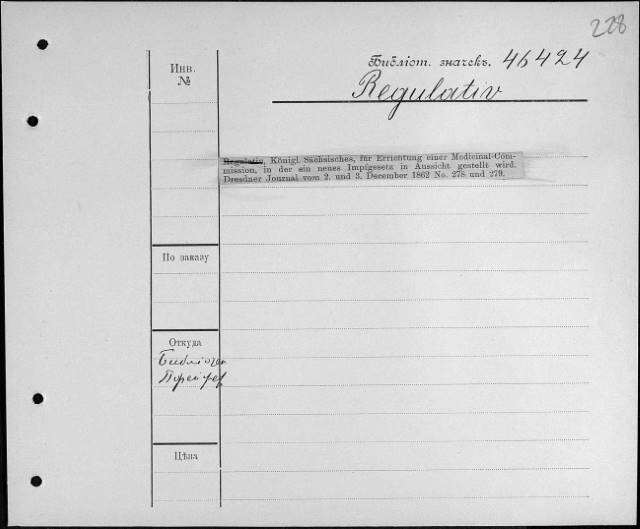 228
Библіот. значекъ. 46424
Regulativ
Инв.
№
Regulativ, Königl. Sächsisches, für Errichtung einer Medicinal-Com-
mission, in der ein neues Impfgesetz in Aussicht gestellt wird.
Dresdner Journal vom 2. und 3. December 1862 No. 278 und 279.
По заказу
Откуда
Библіотек
Цѣна